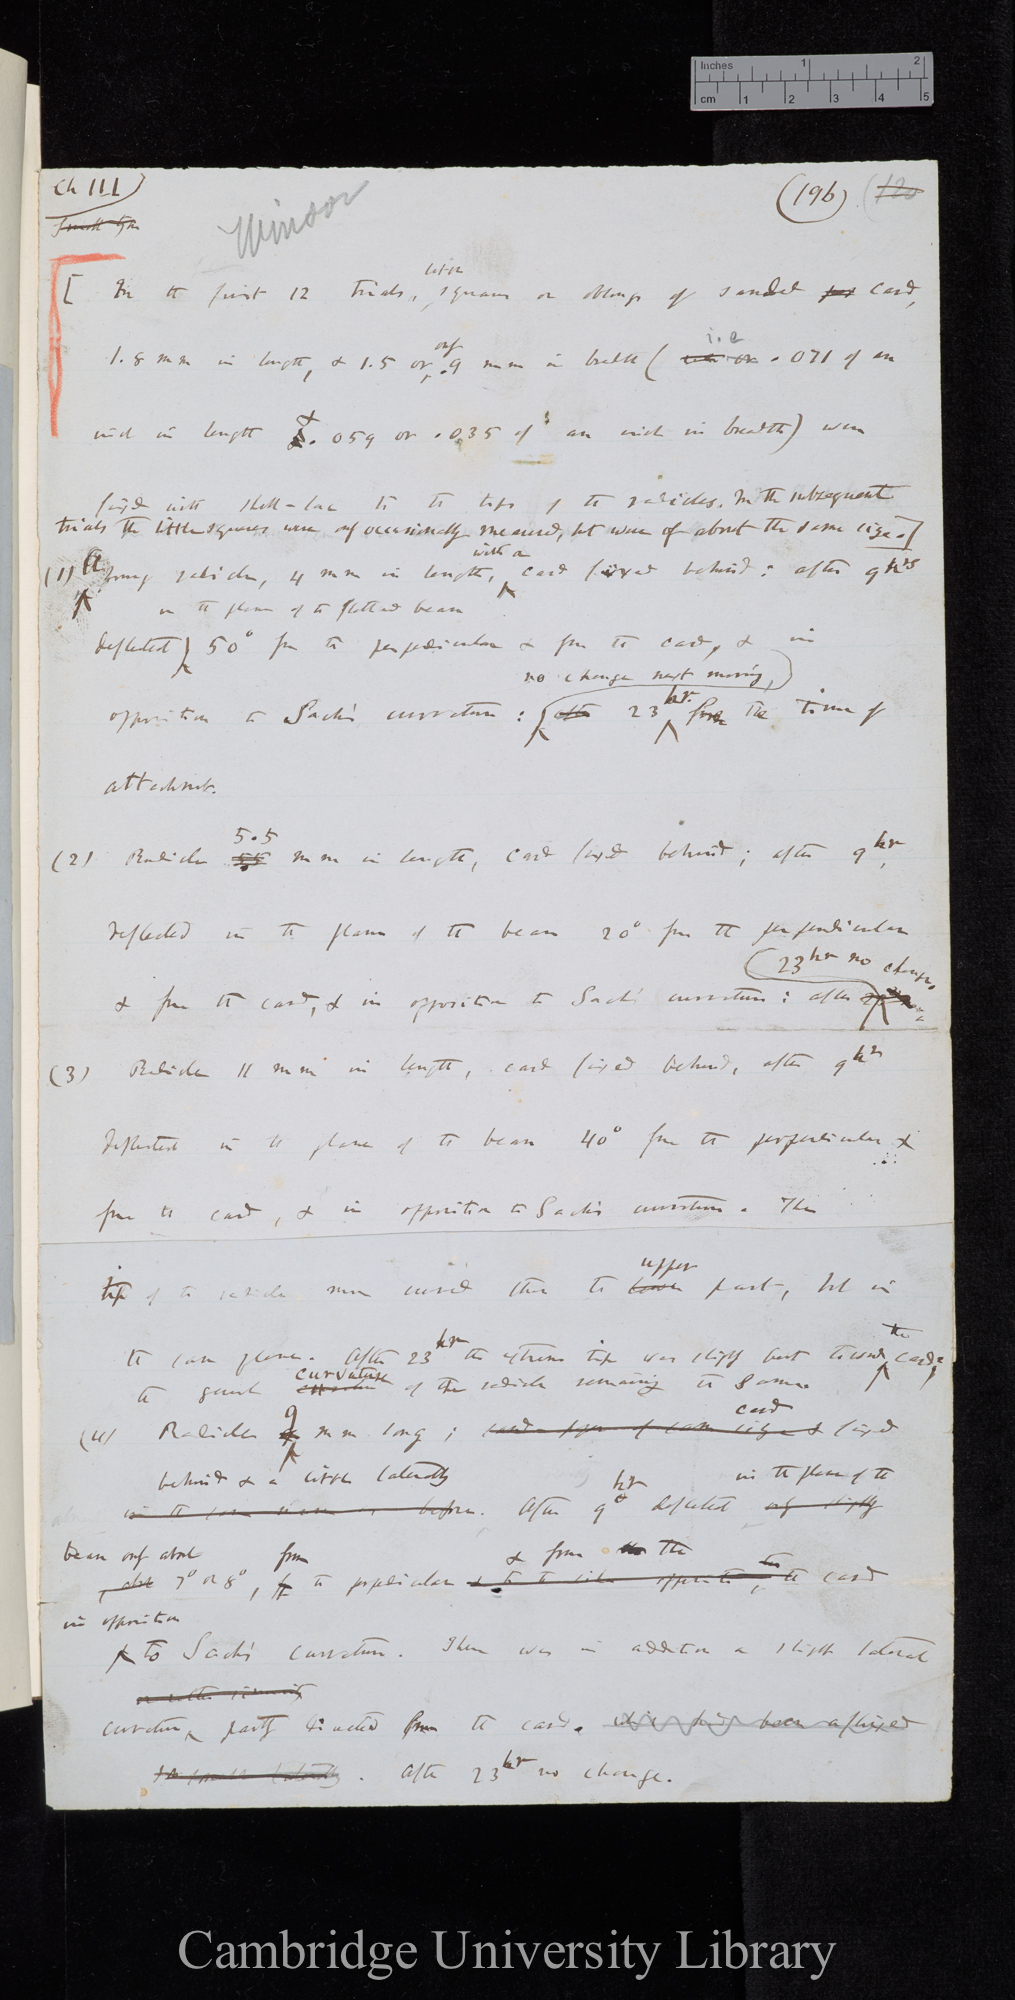 Inches 1 2
cm 1 2 3 4 5
Ch III
(196)
[ In the first 12 trials, little squares or oblongs of sanded card,
1.8 mm in length, & 1.5 or only .9 mm in breadth ( i.e .071 of an
inch in length & .059 or .035 of an inch in breadth) were
fixed with shell-lac to the tips of the radicles. In the subsequent
trials the little squares were only occasionally measured, but were of about the same size.]
(1) A young radicle, 4 mm in length, with a card fixed behind: after 9 hrs
in the plane of the flattened bean
deflected 50° from the perpendicular & from the card, & in
no change next morning,
opposition to Sachs' curvature: 23 hr. from the time of
attachment.
(2) Radicle 5.5 mm in length, card fixed behind; after 9 hr,
deflected in the plane of the bean 20° from the perpendicular
23 hr no change.
& from the card, & in opposition to Sachs' curvature: after
(3) Radicle 11 mm in length, card fixed behind, after 9 hr
deflected in the plane of the bean 40° from the perpendicular &
from the card, & in opposition to Sachs' curvature. The
tip of the radicle more curved than the upper part, but in
the same plane. After 23 hr the extreme tip was slightly bent towards the card;
the general curvature of the radicle remaining the same.
(4) Radicle 9 mm long; card fixed
behind & a little laterally
After 9 hr deflected in the plane of the
bean only about
7° or 8°, from the perpendicular & from the card
in opposition
to Sachs' curvature. There was in addition a slight lateral
curvature, partly directed from the card. which had been affixed
After 23 hr no change.
Cambridge University Library